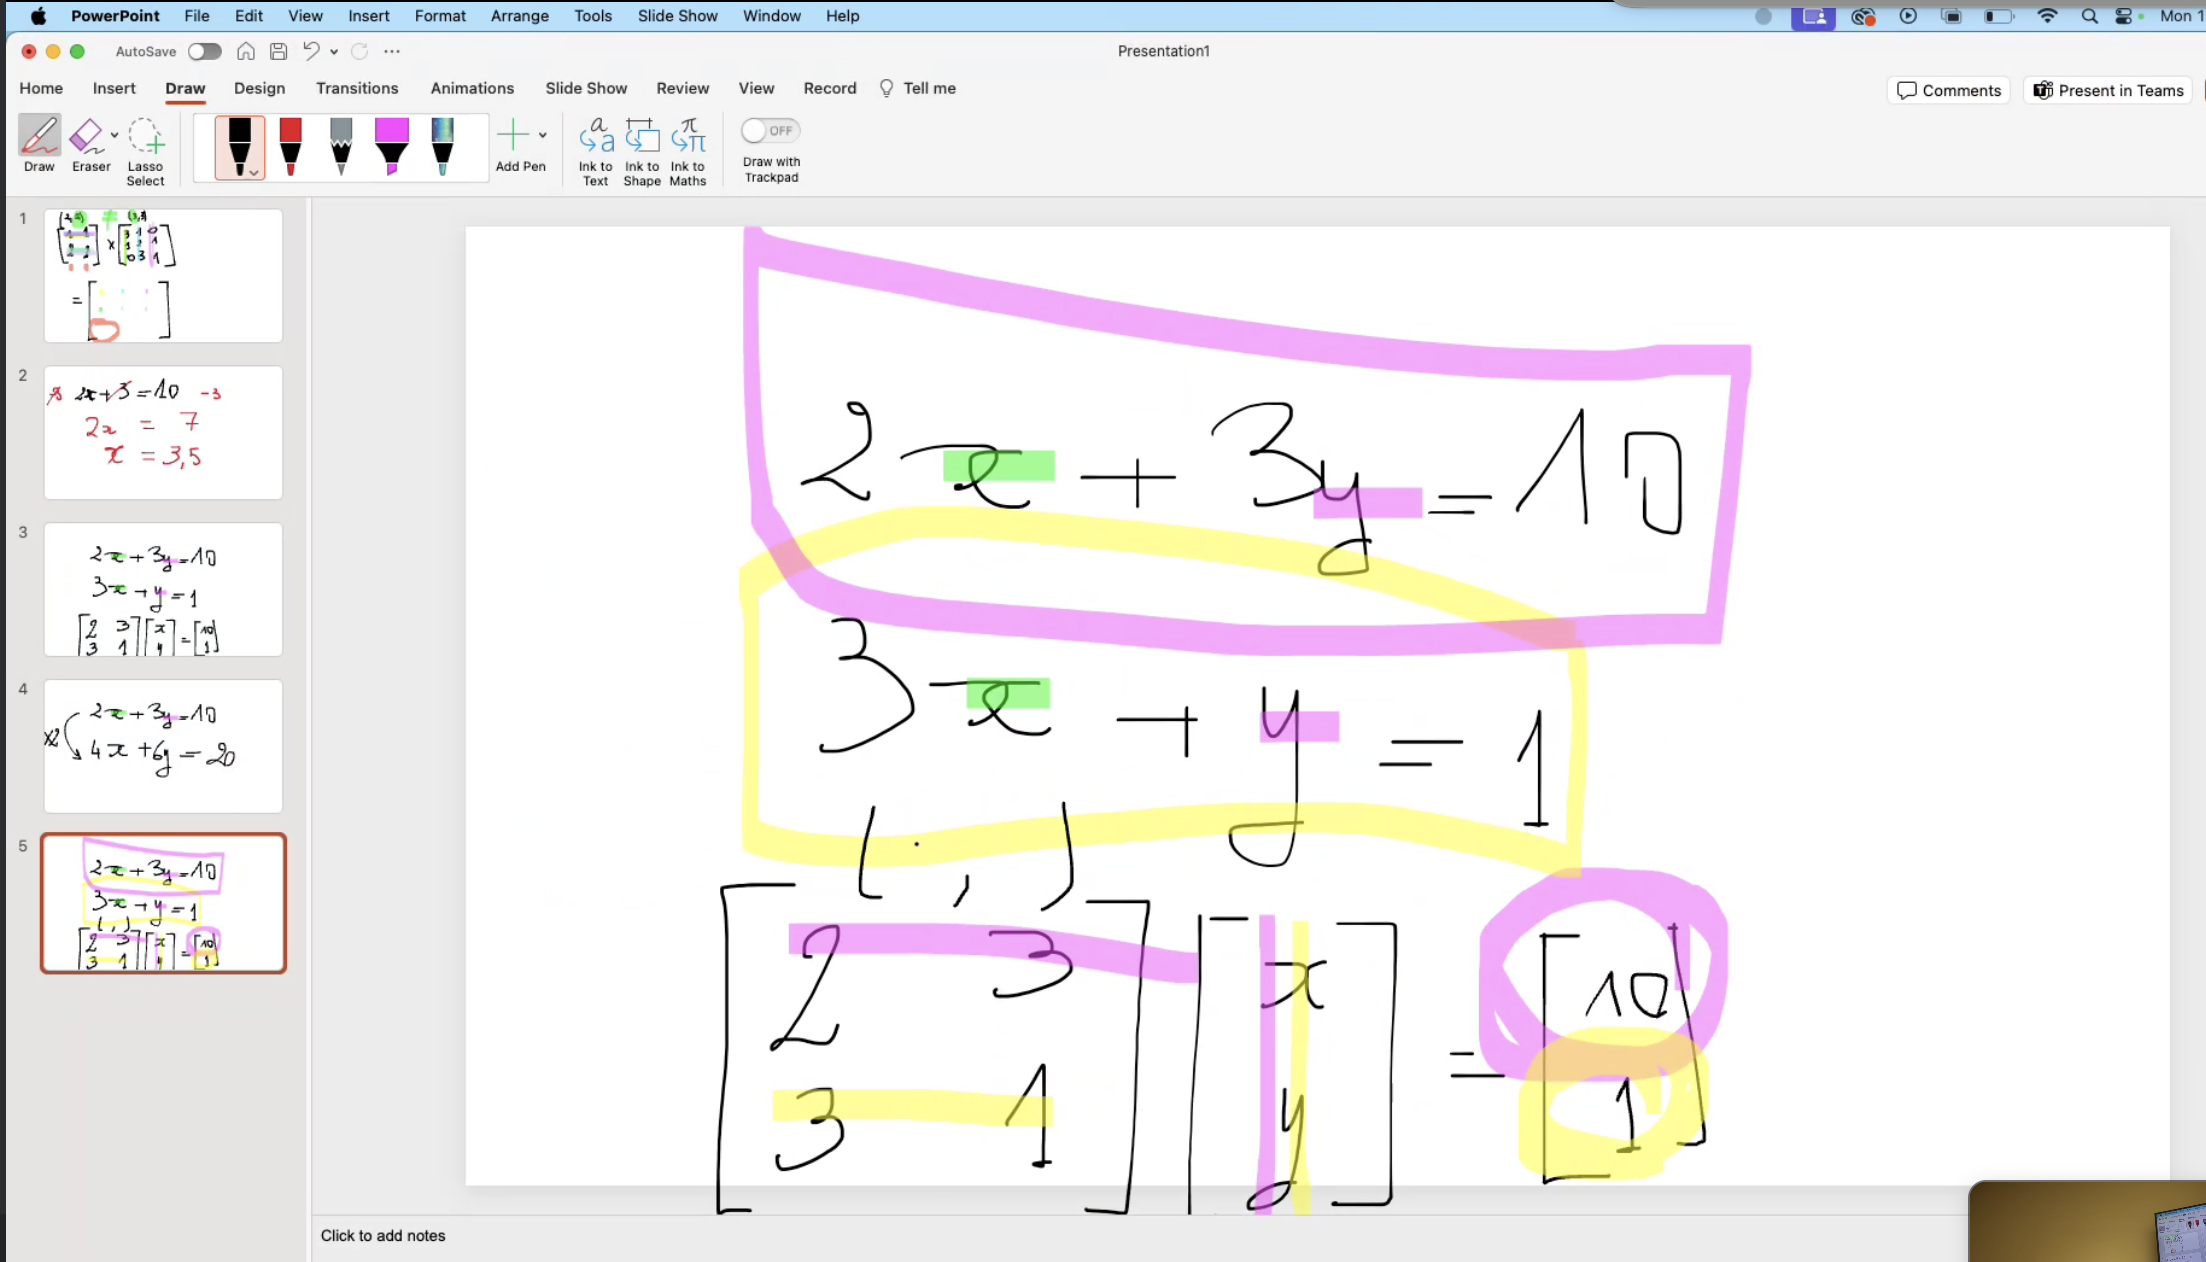 PowerPoint File Edit View Insert Format Arrange Tools Slide Show Window Help Mon 1
AutoSave Presentation1
Home Insert Draw Design Transitions Animations Slide Show Review View Record Tell me Comments Present in Teams
Draw Eraser Lasso Select Add Pen Ink to Text Ink to Shape Ink to Maths OFF Draw with Trackpad
1
×
=
2
2x+3=10 -3
2x = 7
x = 3,5
3
2x+3y=10
3x+y=1
[2 3] [x] = [10]
[3 1] [y] [1]
4
2x+3y=10
x2 4x+6y=20
5
2x+3y=10
3x+y=1
( , )
[2 3] [x] = [10]
[3 1] [y] [1]
2x + 3y = 10
3x + y = 1
( , )
[2 3] [x] = [10]
[3 1] [y] [1]
Click to add notes